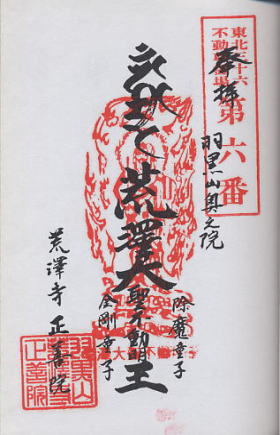 東北三十六
不動尊霊場
第六番
奉拝
羽黒山奥之院
荒澤大聖不動明王
除魔童子
金剛童子
荒澤寺 正善院
羽黒山
正善院